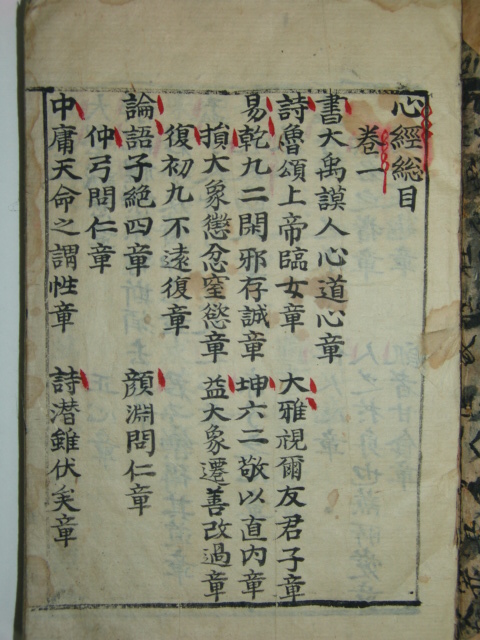 心經総目
卷一
書大禹謨人心道心章
詩魯頌上帝臨女章 大雅視爾友君子章
易乾九二閑邪存誠章 坤六二敬以直內章
損大象懲忿窒慾章 益大象遷善改過章
復初九不遠復章
論語子絶四章 顔淵問仁章
仲弓問仁章
中庸天命之謂性章 詩潜雖伏矣章